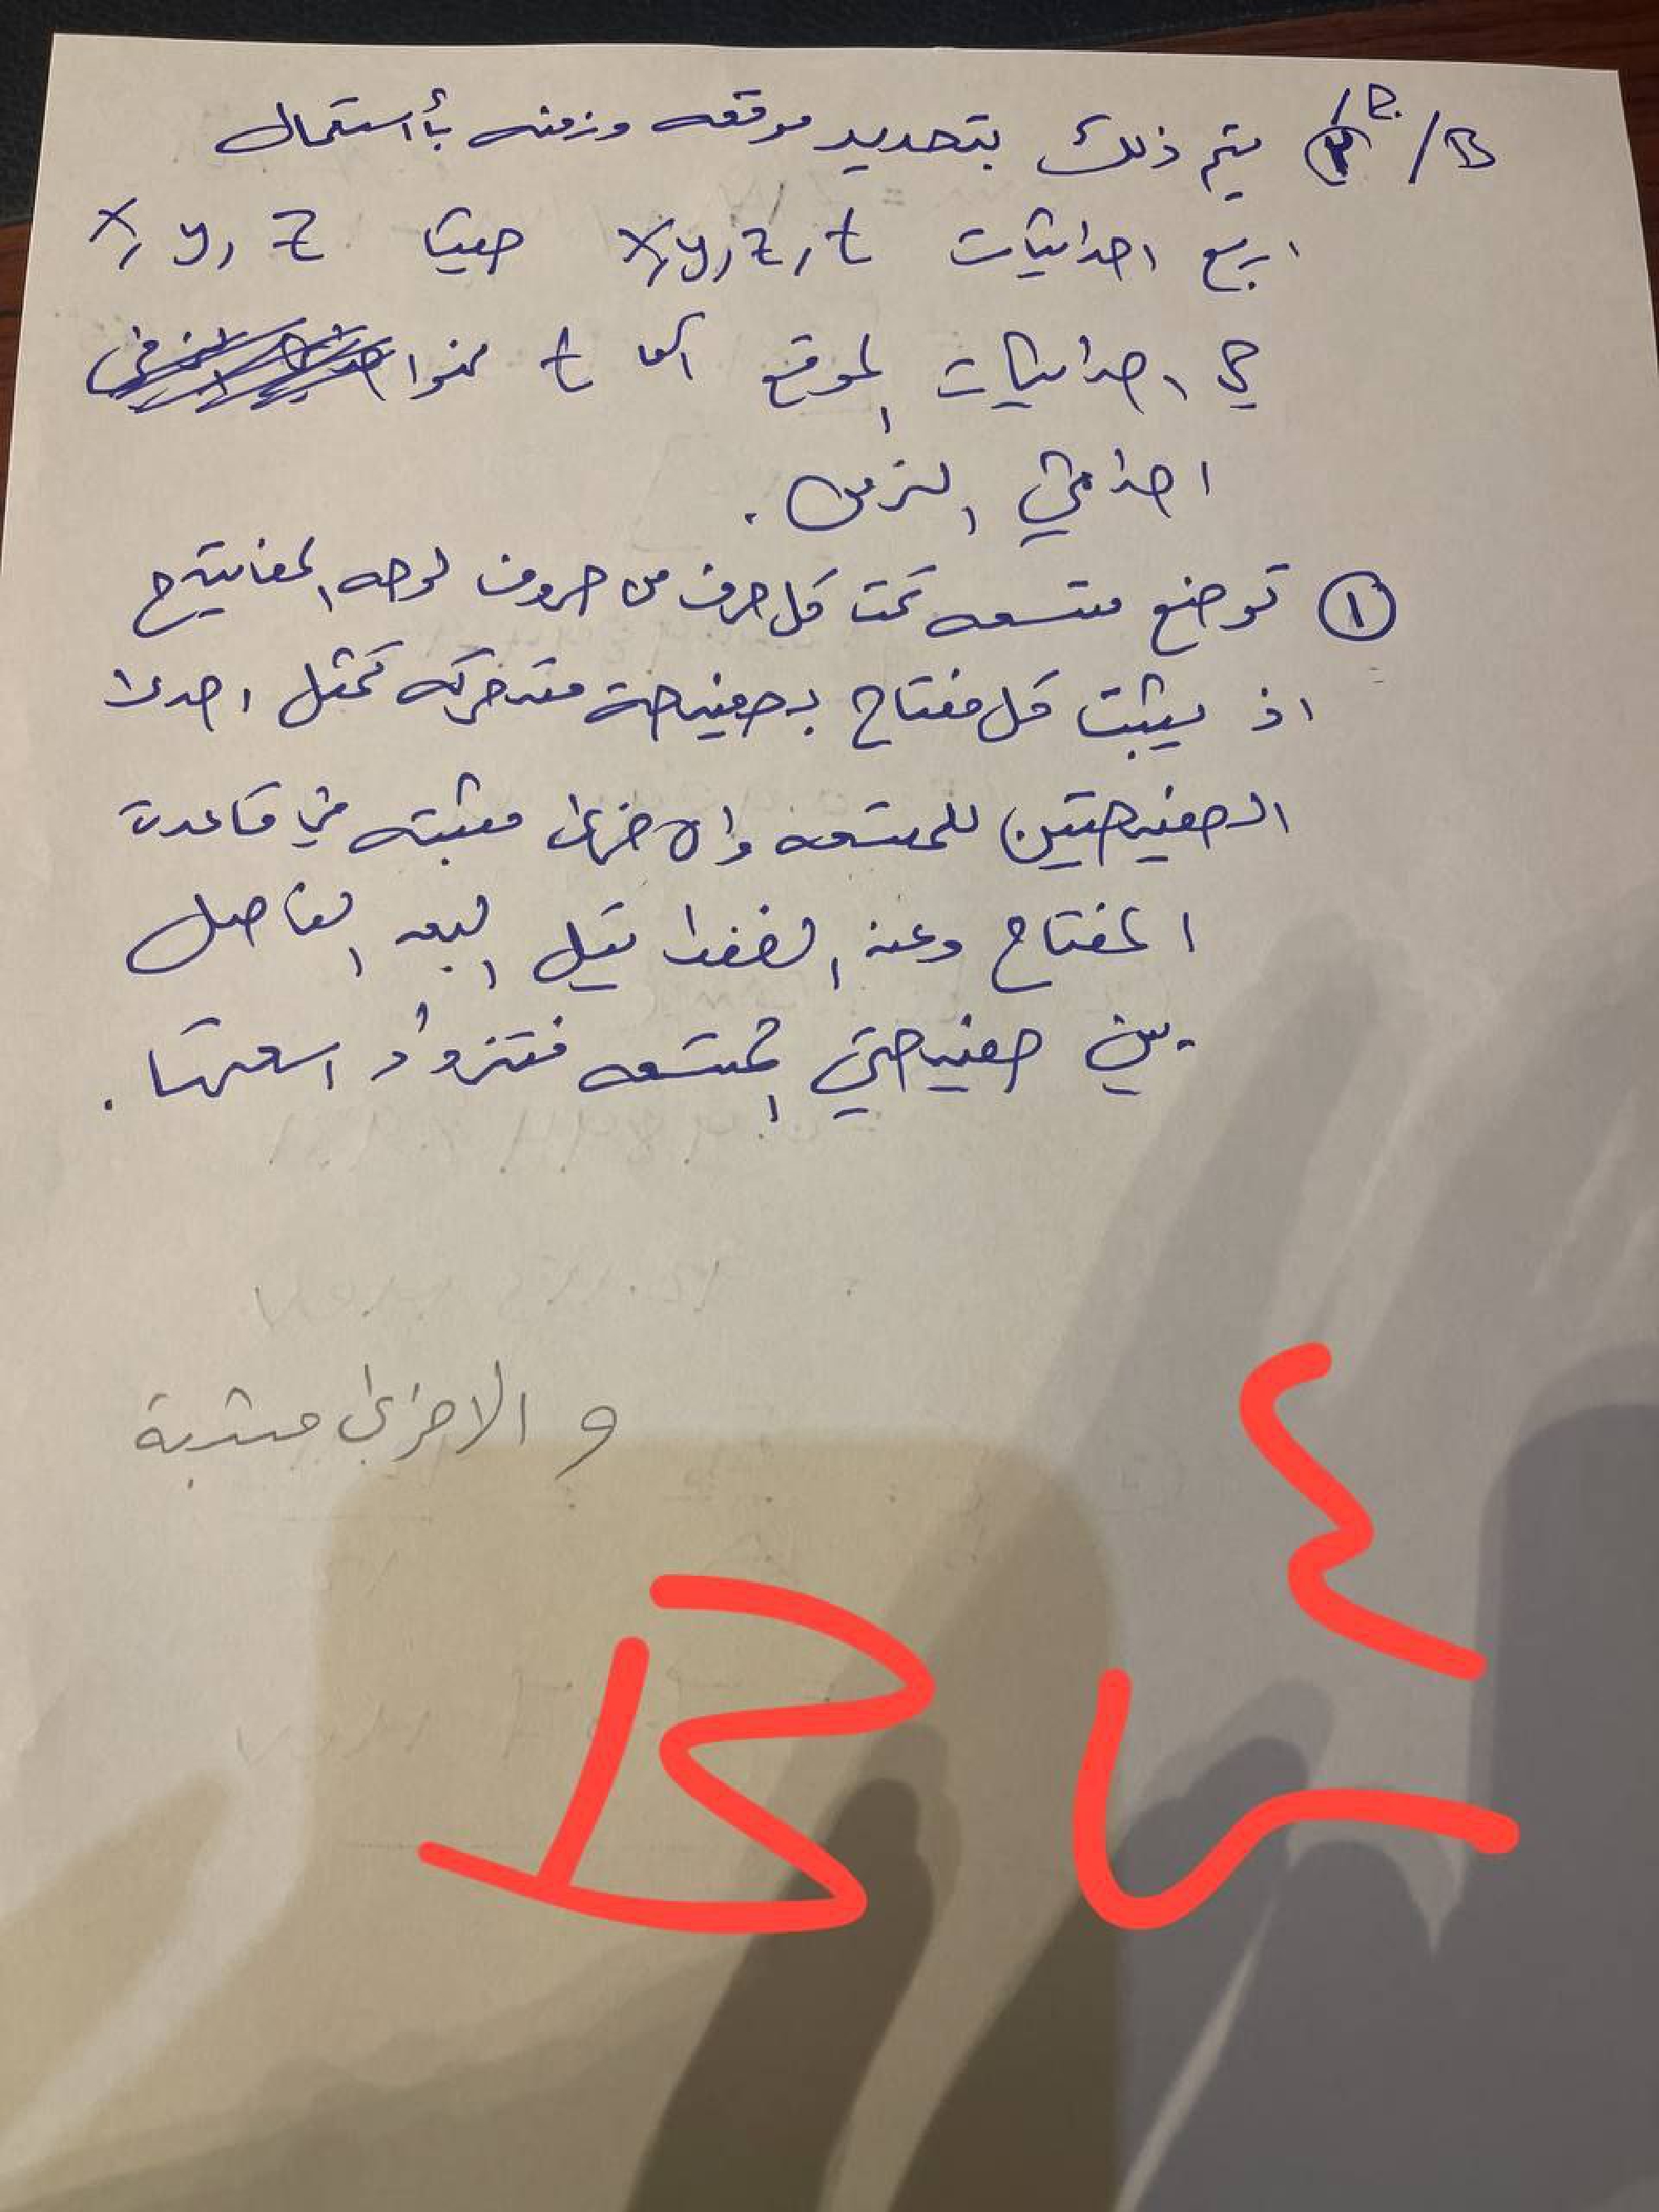 B / ② يتم ذلك بتحديد موقعه وزمنه بأستعمال
اربع احداثيات x, y, z, t حيث x, y, z
هي احداثيات الموقع اما t فهو
احداثي الزمن .
① توضع متسعه تحت كل حرف من حروف لوحه المفاتيح
اذ يثبت كل مفتاح بصفيحة متحركه تمثل احدى
الصفيحتين للمتسعه والاخرى مثبته في قاعدة
المفتاح وعند الضغط يقل البعد الفاصل
بين صفيحتي المتسعه فتزداد سعتها .
و الاخرى مثبتة
B